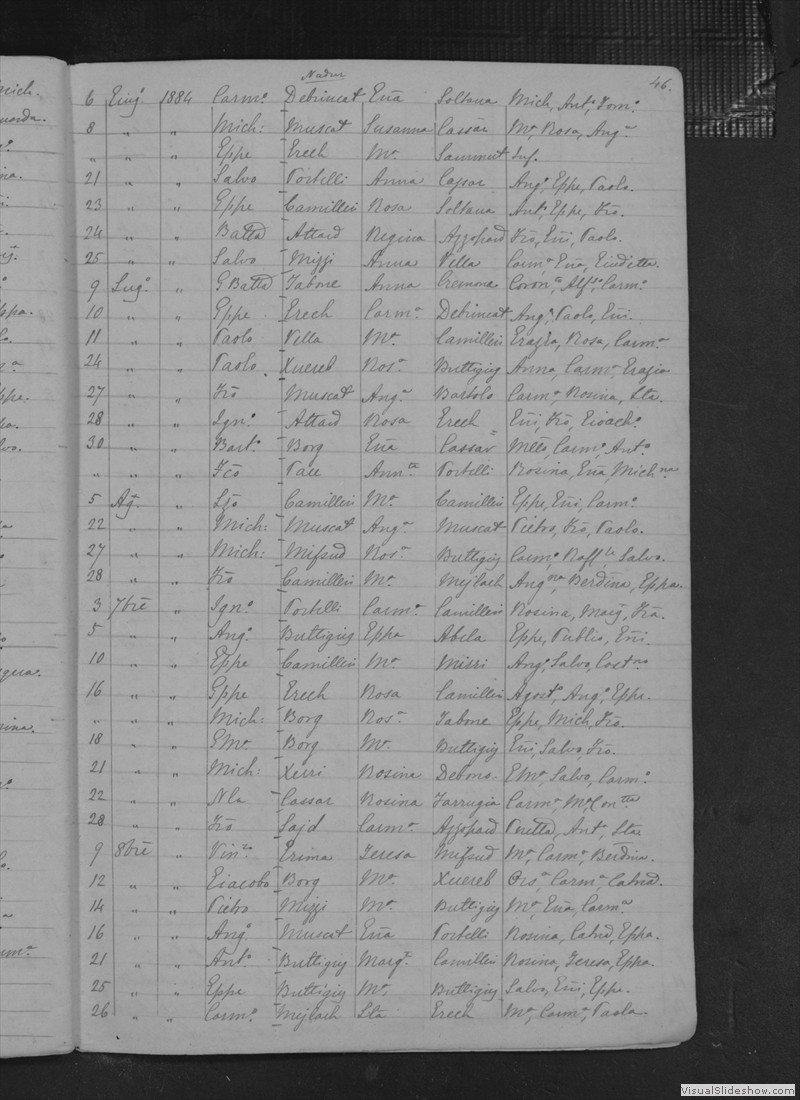 Nadur
46.
6 Giugo. 1884 Carmo. Debrincat Gña Soltana Mich, Anto, Tomo.
8 " " Mich: Muscat Susanna Cassar Ma, Rosa, Anga
" " " Gppe Grech Ma. Sammut Inf.
21 " " Salvo Portelli Anna Cassar Ango, Gppe, Paolo.
23 " " Gppe Camilleri Rosa Soltana Anto, Gppe, Fco.
24 " " Batta Attard Regina Azzopard Fco, Gni, Paolo.
25 " " Salvo Mizzi Anna Vella Carma, Gña, Giuditta.
9 Lugo. " G. Batta Tabone Anna Cremona Corona, Alfo, Carmo
10 " " Gppe Grech Carma. Debrincat Ango, Paolo, Gni.
11 " " Paolo Vella Ma. Camilleri Grazia, Rosa, Carma
24 " " Paolo. Xuereb Rosa Buttigieg Anna, Carma, Grazia
27 " " Fco Muscat Anga Bartolo Carma, Rosina, Sta.
28 " " Igno. Attard Rosa Grech Gni, Fco, Gioacho.
30 " " Barto. Borg Gña Cassar Mteo, Carmo, Anto.
" " " Fco Pace Annta Portelli Rosina, Gña, Michna
5 Ago. " Ljo Camilleri Ma. Camilleri Gppe, Gni, Carmo.
22 " " Mich: Muscat Anga Muscat Pietro, Fco, Paolo.
27 " " Mich: Mifsud Rosa Buttigieg Carmo, Raffla, Salvo.
28 " " Fco Camilleri Ma. Mejlach Angna, Berdina, Gppa.
3 7bre " Igno Portelli Carma Camilleri Rosina, Marg, Fca.
5 " " Ango. Buttigieg Gppa Abela Gppe, Publio, Gni.
10 " " Gppe Camilleri Ma. Mizzi Ango, Salvo, Costno
16 " " Gppe Grech Rosa Camilleri Agosto, Ango, Gppe.
" " " Mich: Borg Rosa Tabone Gppe, Mich, Fco.
18 " " Gmo. Borg Ma. Buttigieg Gni, Salvo, Fco.
21 " " Mich: Xerri Rosina Debono Gmo, Salvo, Carmo.
22 " " Nla Cassar Rosina Farrugia Carma, Ma Conta
28 " " Fco Sajd Carma. Azzopard Peretta, Anta, Sta
9 8bre " Vinzo Prima Teresa Mifsud Ma, Carma, Berdina.
12 " " Giacobo Borg Ma. Xuereb Orsa, Carma, Catna.
14 " " Pietro Mizzi Ma. Buttigieg Ma, Gña, Carma
16 " " Ango. Muscat Gña Portelli Rosina, Catna, Gppa.
21 " " Anto. Buttigieg Marga Camilleri Rosina, Teresa, Gppa.
25 " " Gppe Buttigieg Ma. Buttigieg Salvo, Gni, Gppe.
26 " " Carmo. Mejlach Sta Grech Ma, Carma, Paola.
VisualSlideshow.com